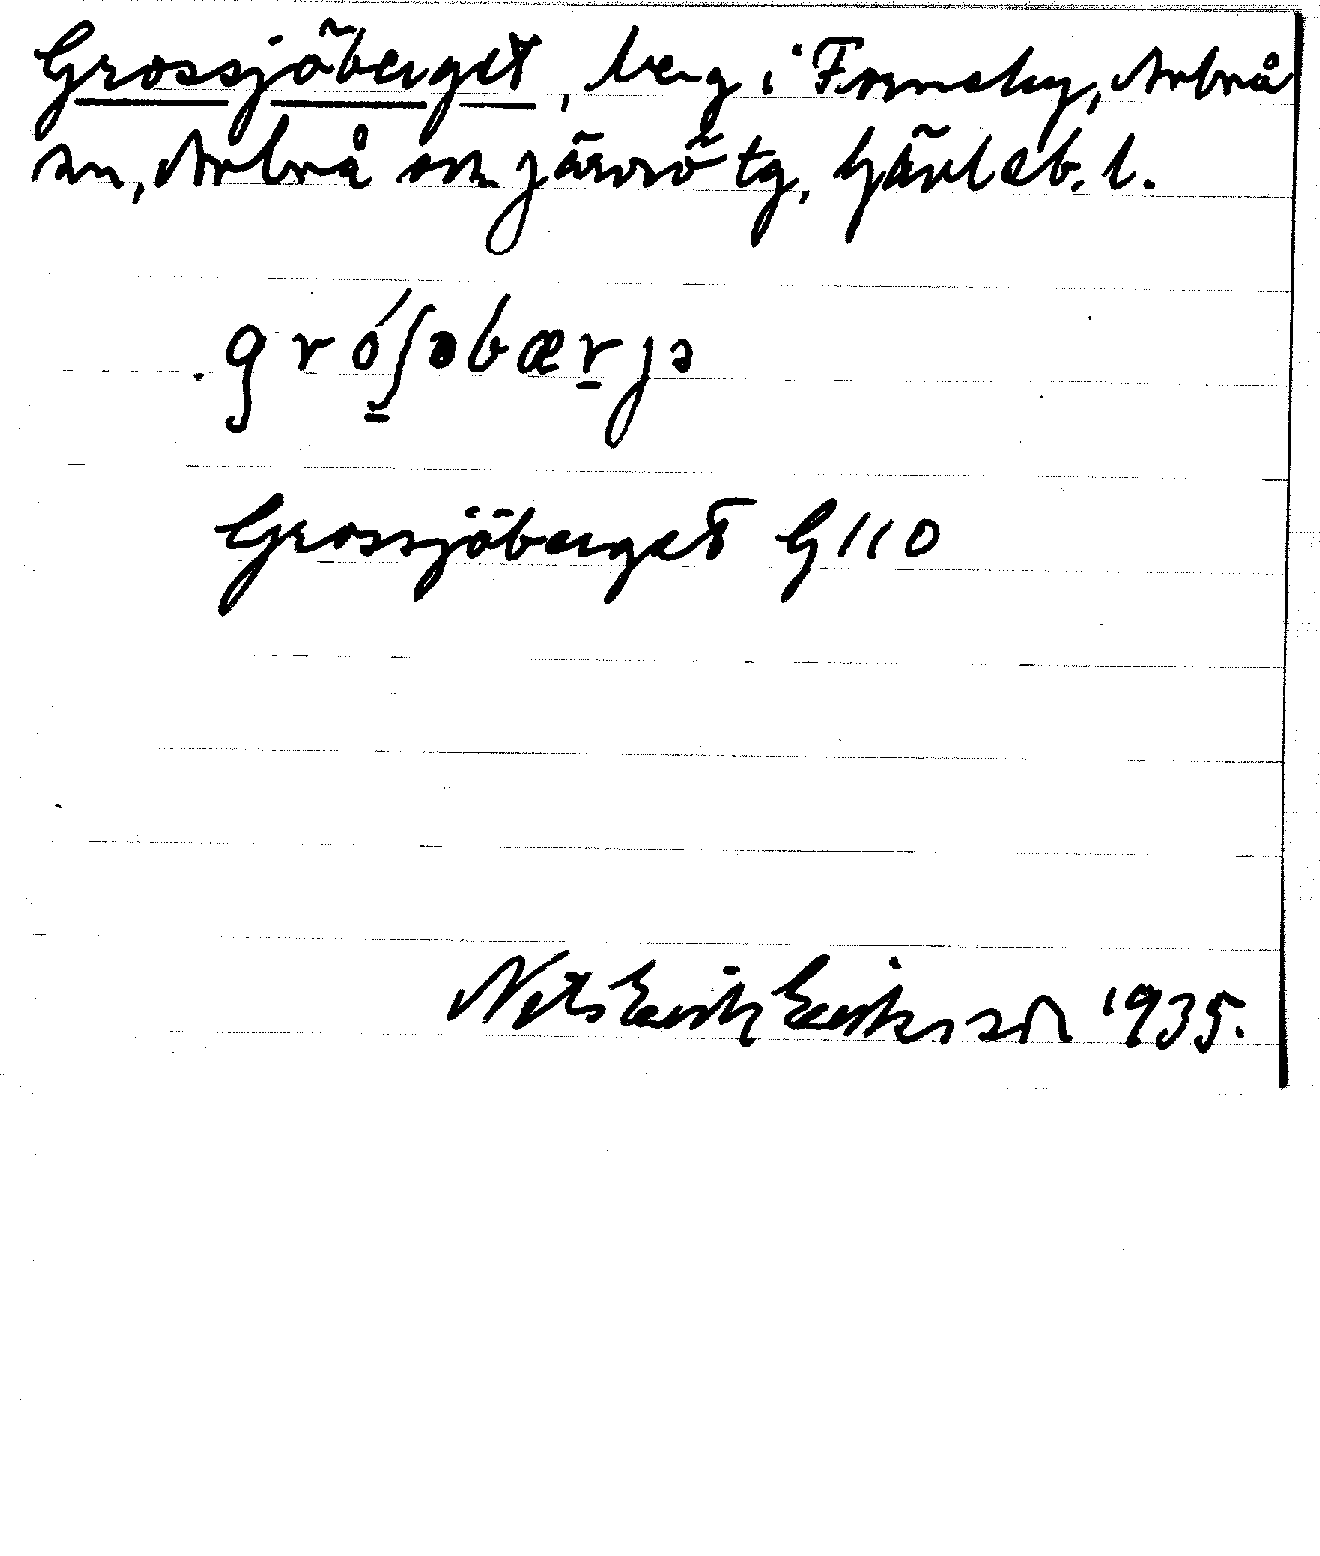 Grossjöberget, berg i Forneby, Arbrå
sn, Arbrå och Järvsö tg, Gävleb. l.
gróʃəbærjə
Grossjöberget G110
Nils Erik Eriksson 1935.